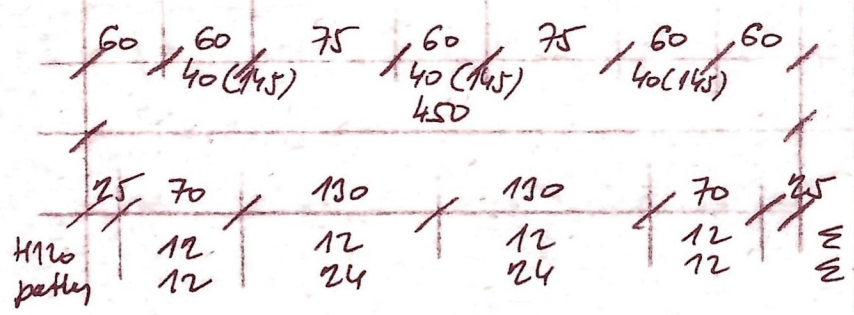 60 60 75 60 75 60 60
40(145) 40(145) 40(145)
450
25 70 130 130 70 25
H120 12 12 12 12 Σ
12 24 24 12 Σ